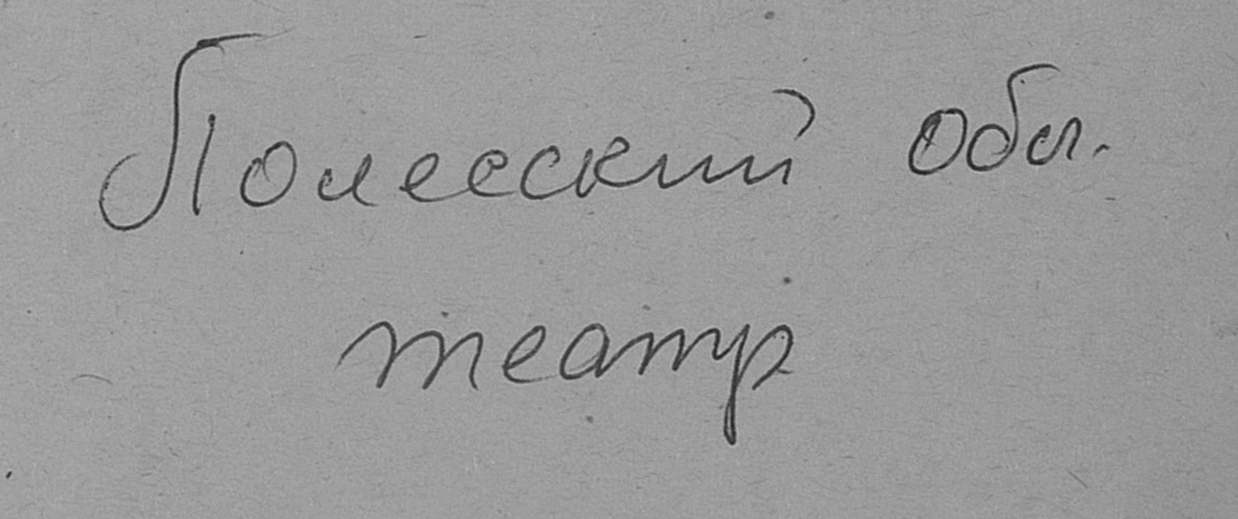 Полесский обл.
театр